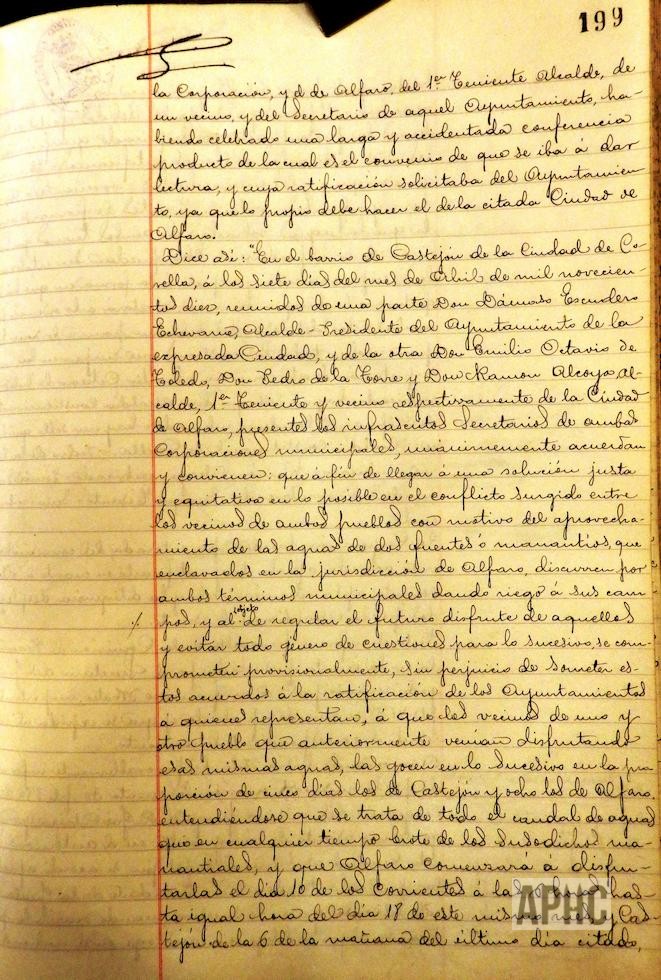 199
la Corporación, y el de Alfaro, del 1er Teniente Alcalde, de
un vecino, y del Secretario de aquel Ayuntamiento, ha-
biendo celebrado una larga y accidentada conferencia
producto de la cual es el convenio de que se iba á dar
lectura, y cuya ratificación solicitaba del Ayuntamien-
to, ya que lo propio debe hacer el de la citada Ciudad de
Alfaro.
Dice así: "En el barrio de Castejón de la Ciudad de Co-
rella, á los siete días del mes de Abril de mil novecien-
tos diez, reunidos de una parte Don Dámaso Escudero
Echevarria, Alcalde-Presidente del Ayuntamiento de la
expresada Ciudad, y de la otra Don Emilio Octavio de
Toledo, Don Pedro de la Torre y Don Ramon Alcoya Al-
calde, 1er Teniente y vecino respectivamente de la Ciudad
de Alfaro, presentes los infrascritos Secretarios de ambas
Corporaciones municipales, unánimemente acuerdan
y convienen: que á fin de llegar á una solución justa
y equitativa en lo posible en el conflicto surgido entre
los vecinos de ambos pueblos con motivo del aprovecha-
miento de las aguas de dos fuentes ó manantios, que
enclavados en la jurisdicción de Alfaro, discurren por
ambos términos municipales dando riego á sus cam-
pos, y al objeto de regular el futuro disfrute de aquellos
y evitar todo género de cuestiones para lo sucesivo, se com-
prometen provisionalmente, sin perjuicio de someter es-
tos acuerdos á la ratificación de los Ayuntamientos
á quienes representan, á que los vecinos de uno y
otro pueblo que anteriormente venían disfrutando
esas mismas aguas, las gocen en lo sucesivo en la pro-
porción de cinco días los de Castejón y ocho los de Alfaro,
entendiéndose que se trata de todo el caudal de aguas
que en cualquier tiempo brote de los susodichos ma-
nantiales, y que Alfaro comenzará á disfru-
tarlas el día 10 de los corrientes á las has-
ta igual hora del día 18 de este mismo mes, y Cas-
tejón de la 6 de la mañana del último día citado,
APHC